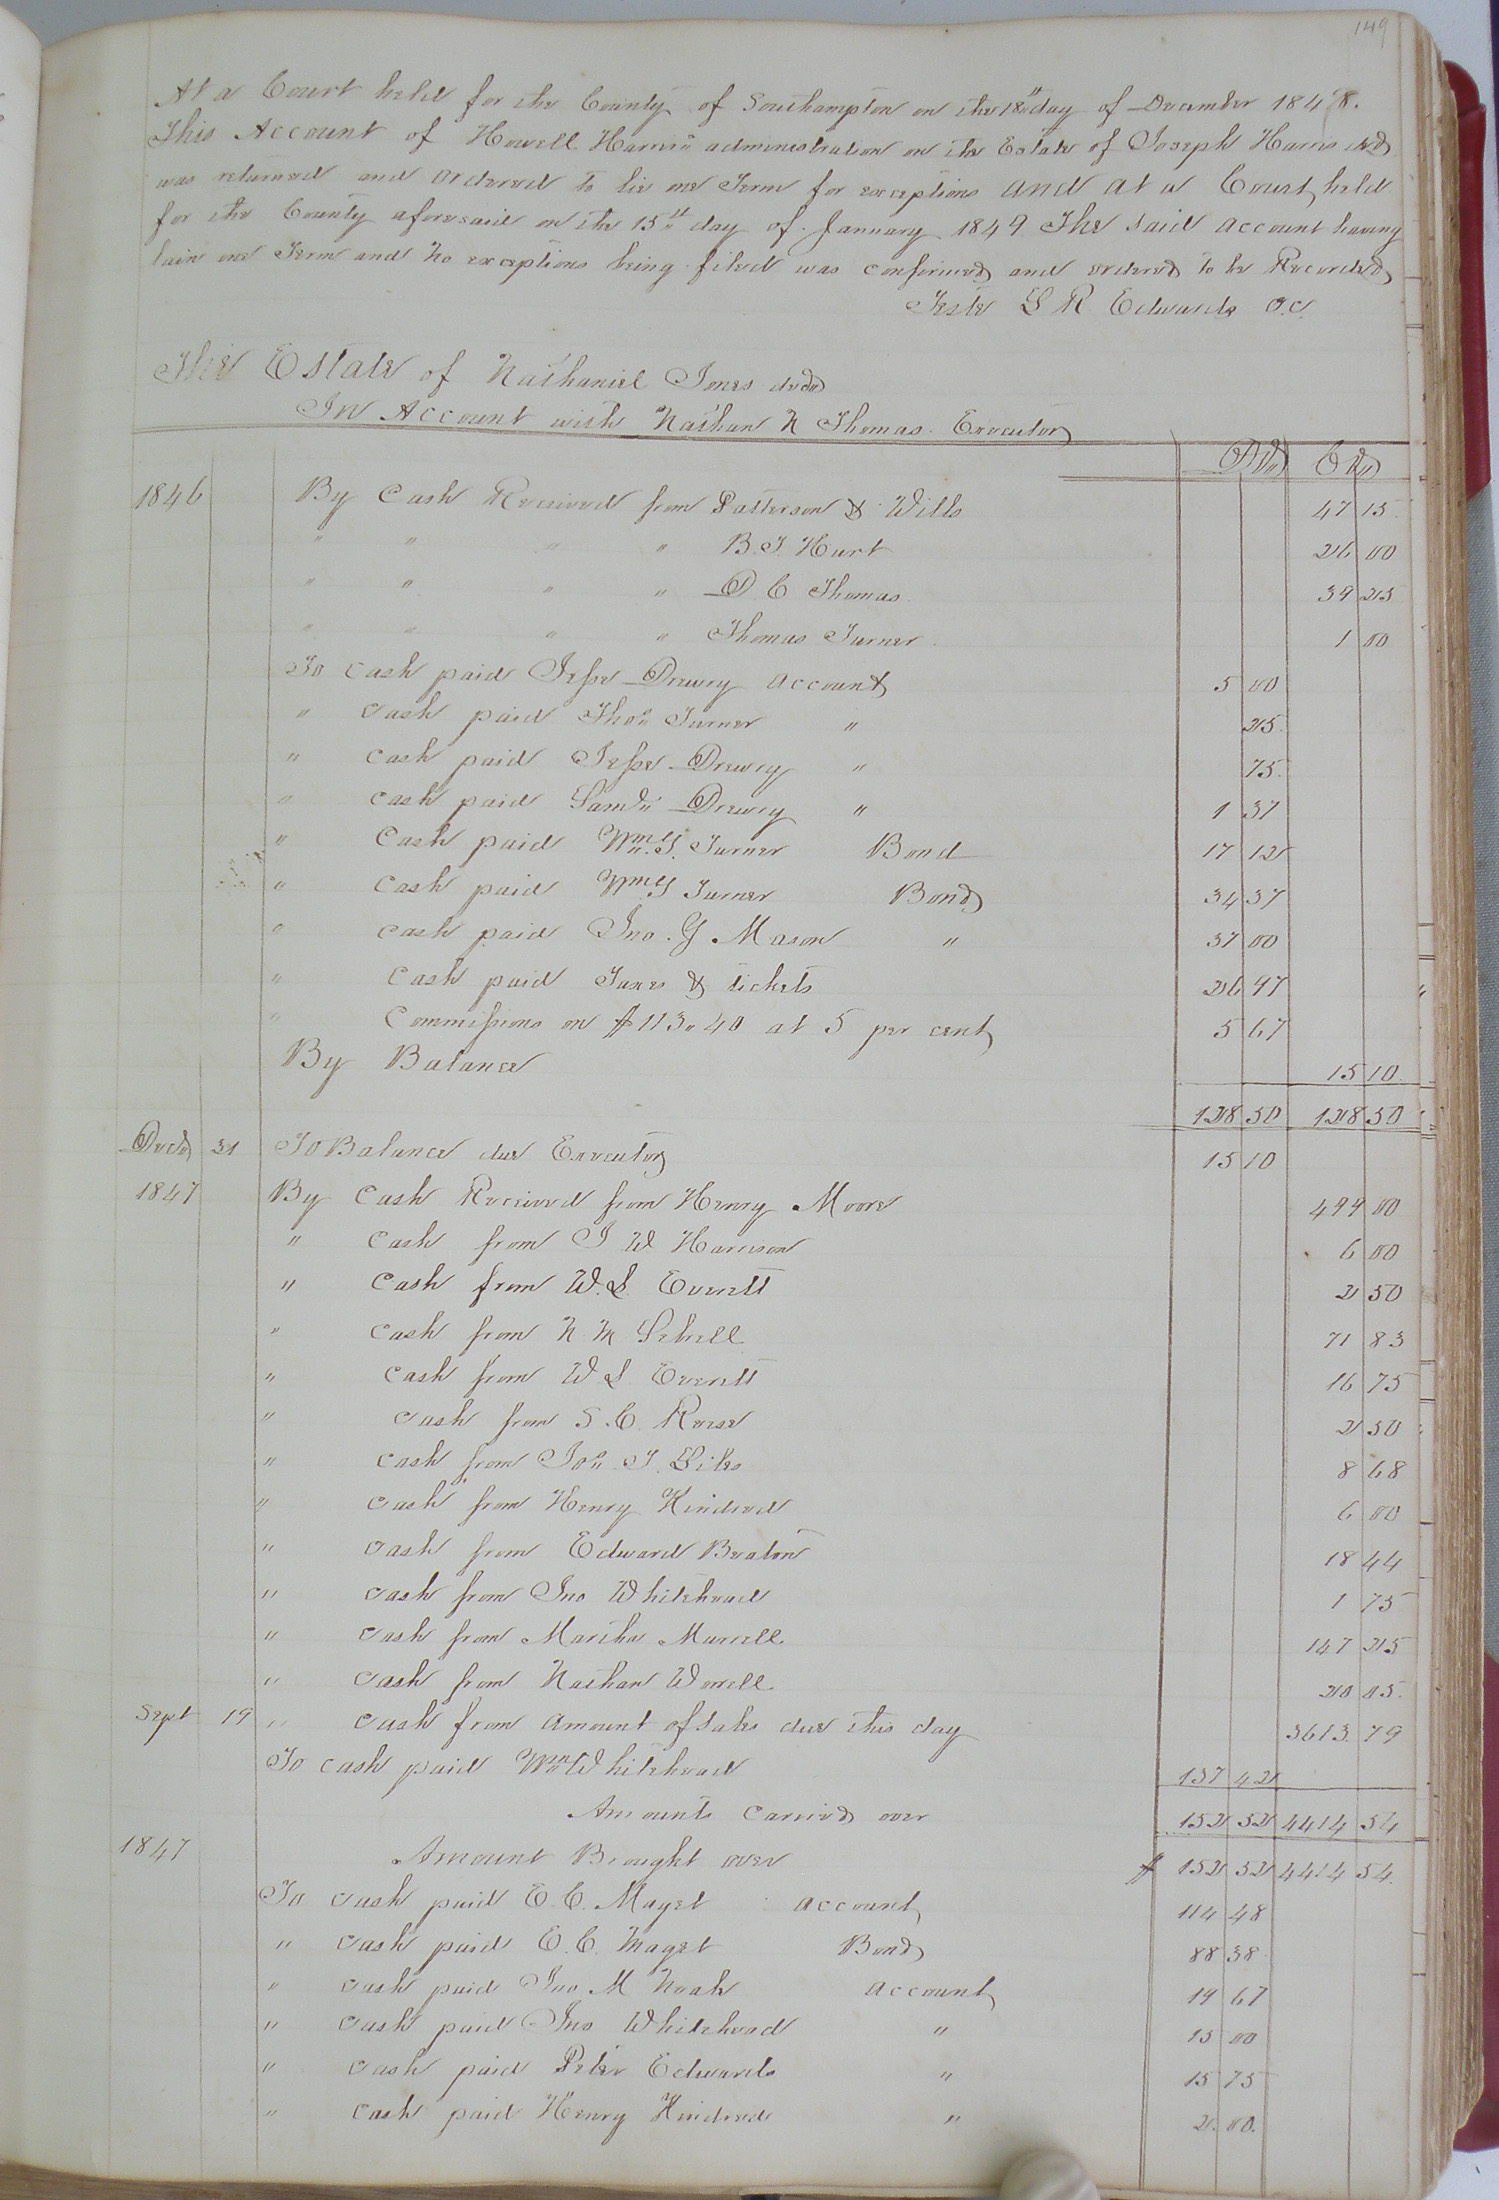 149
At a Court held for the County of Southampton on the 18th day of December 1848.
This Account of Howell Harris administration on the Estate of Joseph Harris decd
was returned and ordered to lie one Term for exceptions and at a Court held
for the County aforesaid on the 15th day of January 1849 The said account having
lain one Term and no exceptions being filed was confirmed and ordered to be Recorded
Teste L R Edwards c.c.
The Estate of Nathaniel Jones decd
In Account with Nathan N Thomas Executor
Dr Cr
1846 By Cash Received from Patterson & Wills 47 15
" " " " B. T. Hurt 26 00
" " " " D. C Thomas 39 25
" " " " Thomas Turner 1 00
To cash paid Jesse Drewry account 5 00
" cash paid Thos Turner " 25
" cash paid Jesse Drewry " 75
" cash paid Saml Drewry " 1 37
" cash paid Wm T. Turner Bond 17 12
" cash paid Wm T Turner Bond 34 37
" cash paid Jno. Y. Mason " 37 00
" cash paid Taxes & tickets 26 97
" Commissions on $113.40 at 5 per cent 5 67
By Balance 15 10
128 50 128 50
Decr 31 To Balance due Executor 15 10
1847 By Cash Received from Henry Moore 499 00
" cash from J W Harrison 6 00
" cash from W. L. Everett 2 50
" cash from N M Sebrell 71 83
" cash from W L Everett 16 75
" cash from S. C. Reese 2 50
" cash from Jos. T. Sikes 8 68
" cash from Henry Kindred 6 00
" cash from Edward Beaton 18 44
" cash from Jno Whitehead 1 75
" cash from Martha Murrell 147 25
" cash from Nathan Worrell 20 05
Sept 19 " cash from amount of sales due this day 3613 79
To cash paid Wm Whitehead 137 42
Amounts carried over 152 52 4414 54
1847 Amount Brought over $ 152 52 4414 54
To cash paid E. C. Maget account 114 48
" cash paid E. C. Maget Bond 88 38
" cash paid Jno M Noah account 19 67
" cash paid Jno Whitehead " 15 00
" cash paid Peter Edwards " 15 75
" cash paid Henry Kindred " 2 00